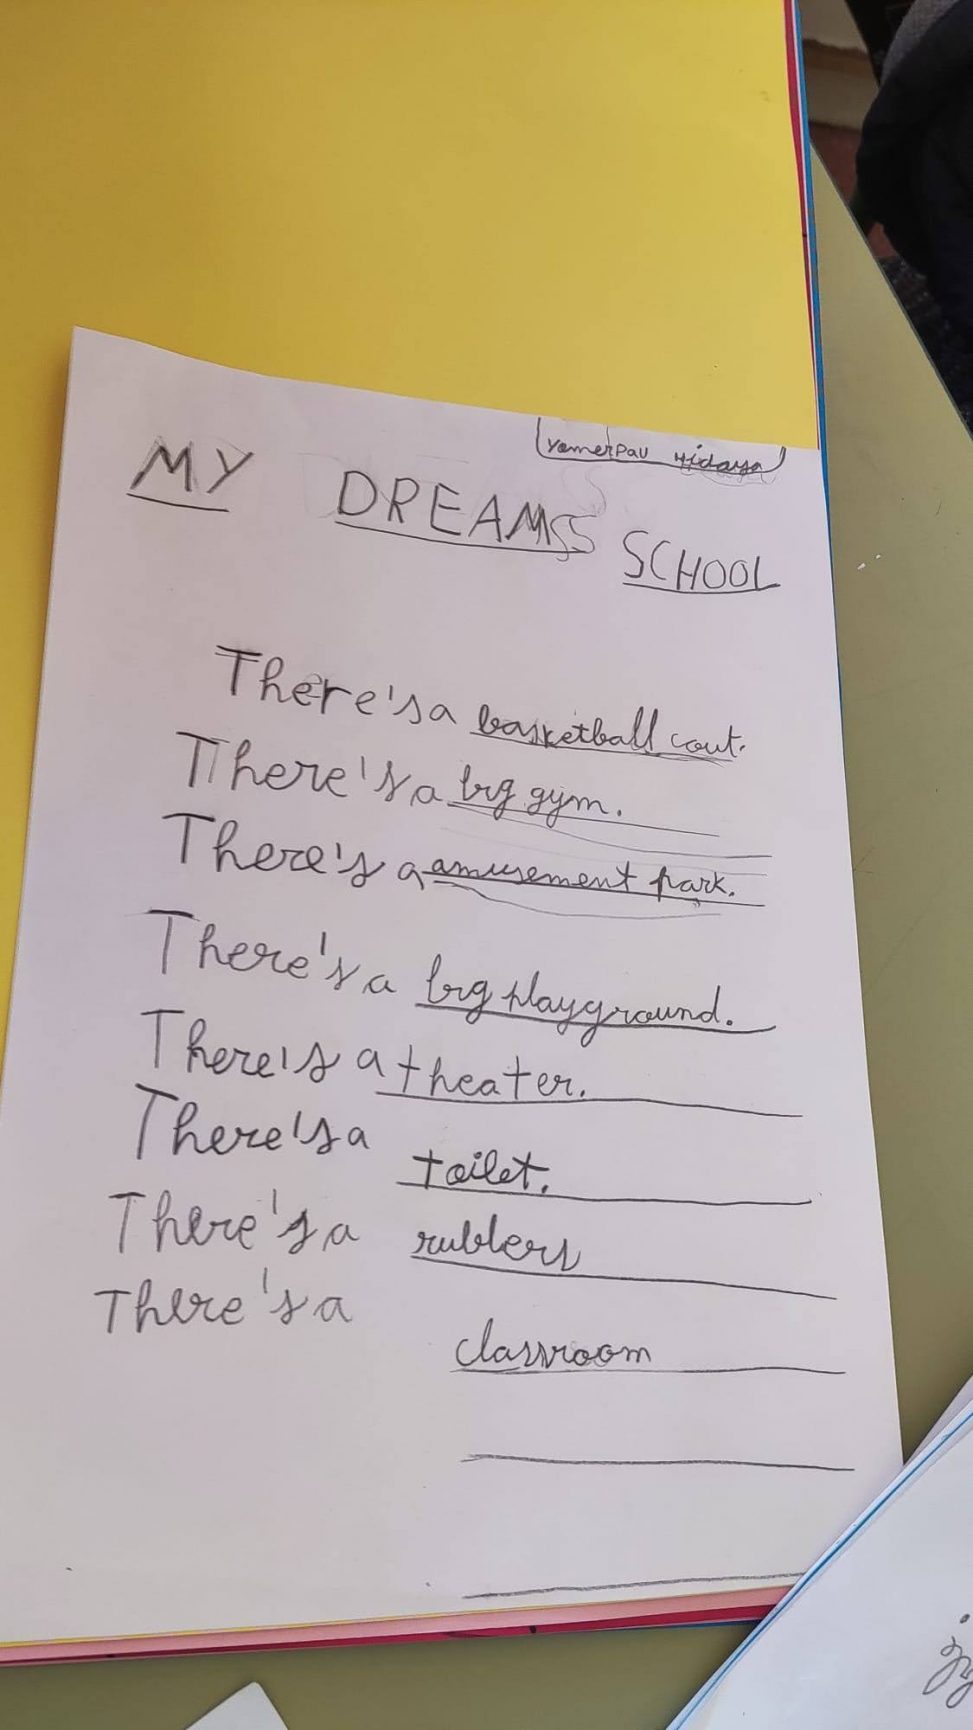 YamerPau Hidaya
MY DREAMSS SCHOOL
There's a basketball cout.
There's a big gym.
There's a amusement park.
There's a big playground.
There's a theater.
There's a toilet.
There's a rubbers
There's a classroom